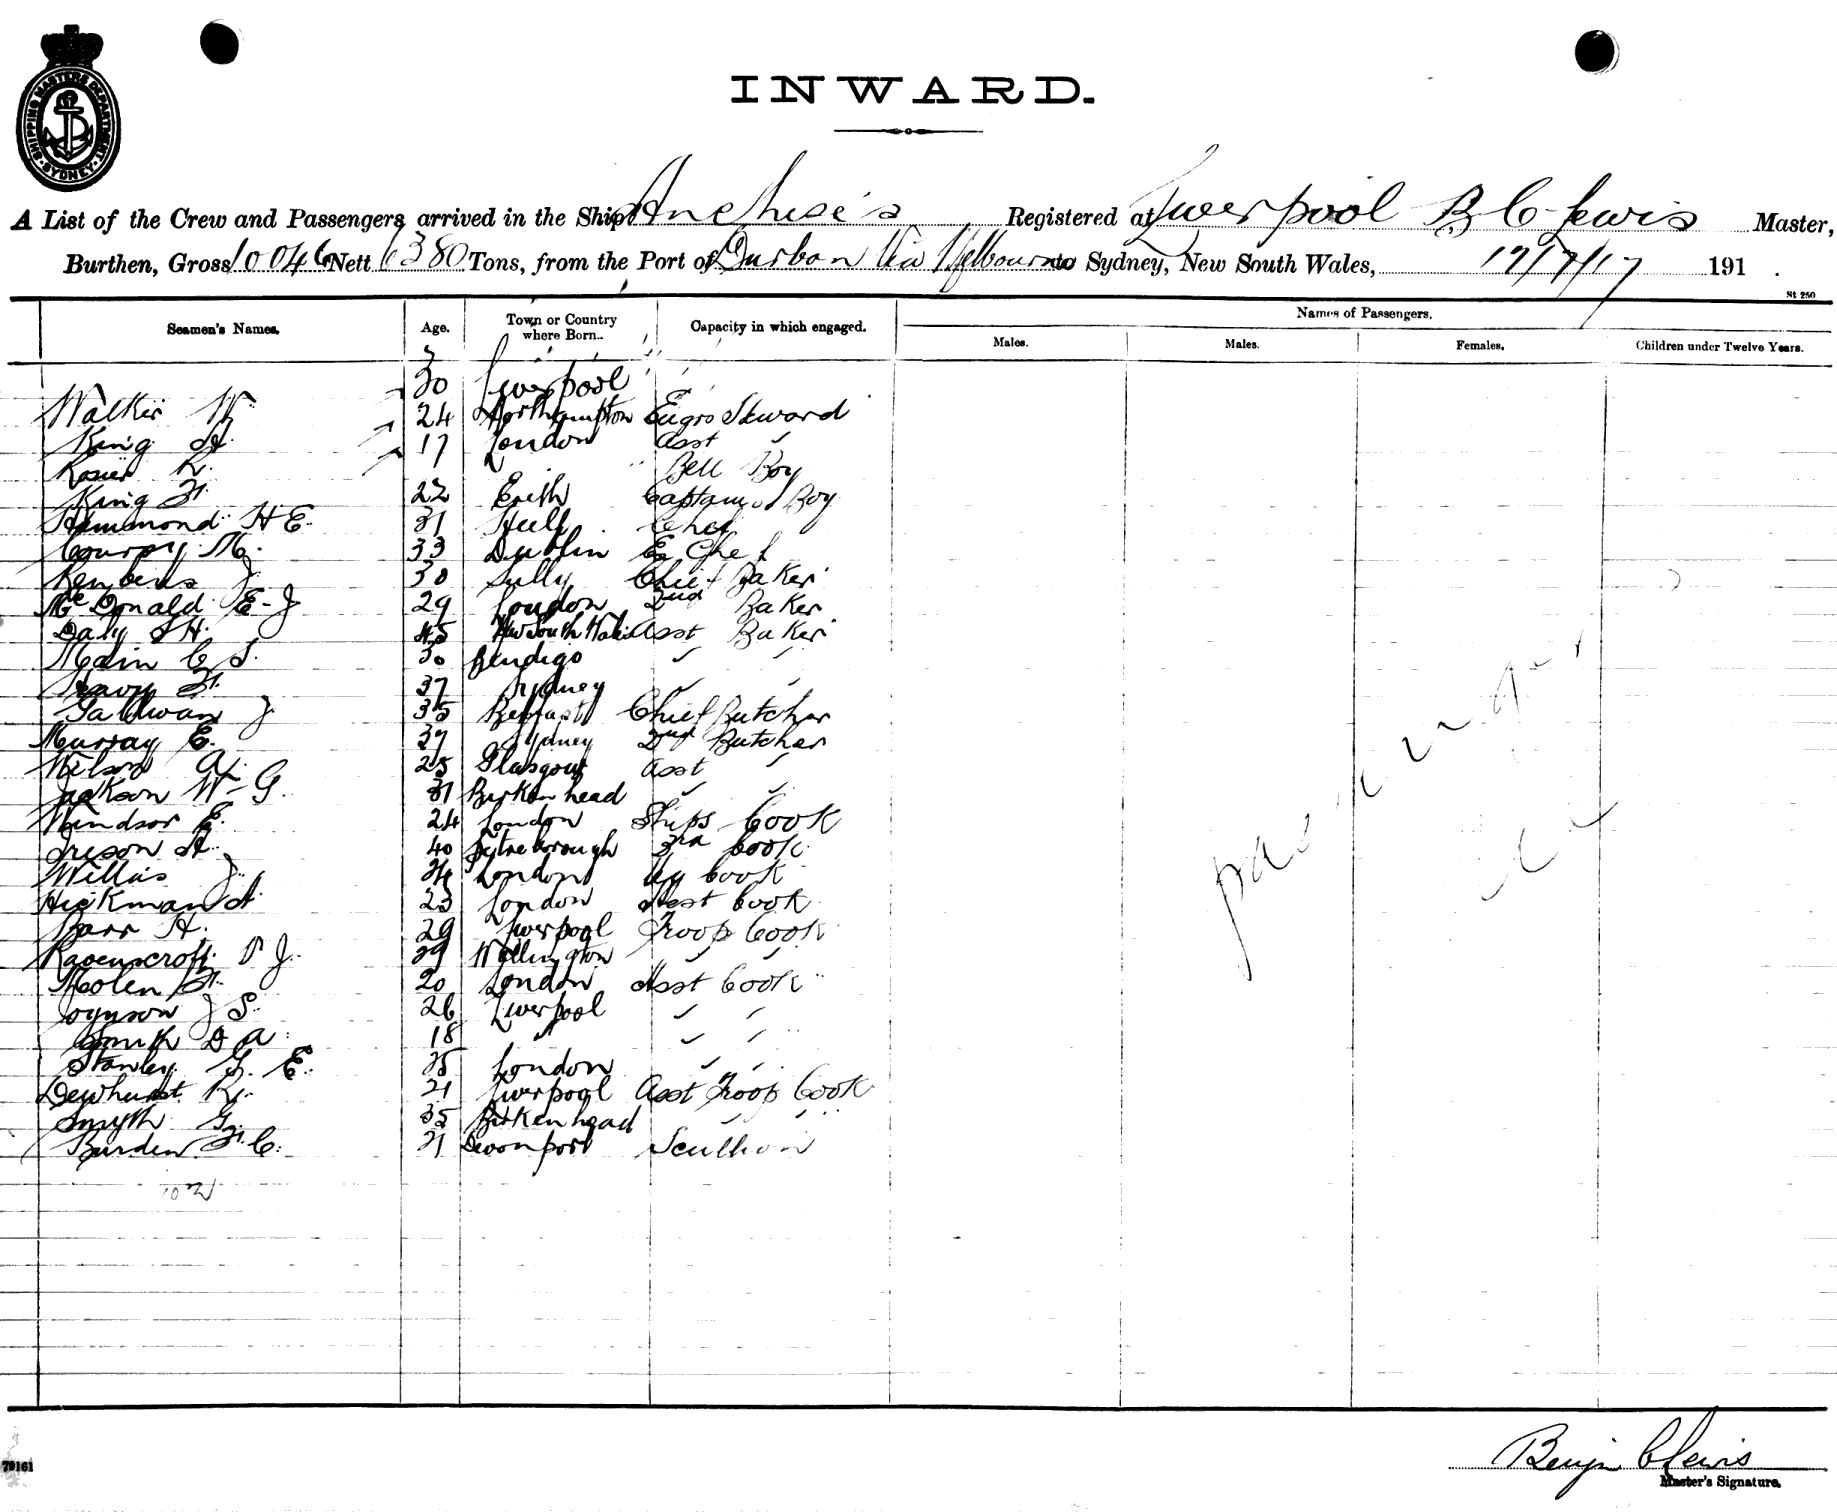 SHIPPING MASTERS DEPARTMENT SYDNEY
INWARD.
A List of the Crew and Passengers arrived in the Ship Anchises Registered at Liverpool B C Lewis Master,
Burthen, Gross 10046 Nett 6380 Tons, from the Port of Durban Via Melbourne to Sydney, New South Wales, 17/7/17 191 .
St 250
Seamen's Names. Age. Town or Country where Born. Capacity in which engaged. Names of Passengers.
Males. Males. Females. Children under Twelve Years.
30 Liverpool
Walker W 24 Northampton Engrs Steward
King A. 17 London Asst "
Rosier R. " Bell Boy
King F. 22 Erith Captains Boy
Hammond H E. 31 Hull Chef
M. 33 Dublin Ex Chef
J. 30 Chief Baker
McDonald E-J 29 London 2nd Baker
Daly J H. 45 New South Wales Asst Baker
Malin C S. 30 Bendigo " "
F. 37 Sydney " "
J 35 Belfast Chief Butcher
Murray E. 37 Sydney 2nd Butcher
Wilson A. 25 Glasgow Asst "
Jackson W-G. 31 Birkenhead " "
Windsor E. 24 London Ships Cook
Ireson A. 40 3rd Cook
Willis J. London Cook
Hickman A. 23 London Asst Cook
Barr A. 29 Liverpool Troop Cook
Ravenscroft P J. 39 Wellington " "
F. 20 London Asst Cook
Joynson J S. 26 Liverpool " "
Smith D A. 18 " " "
Stanley G. E. 25 London " "
Dewhurst R. 21 Liverpool Asst Troop Cook
Smyth G. 35 Birkenhead " "
Burden F. C. 21 Devonport Scullion
passenger
79161
Benjn C Lewis
Master's Signature.